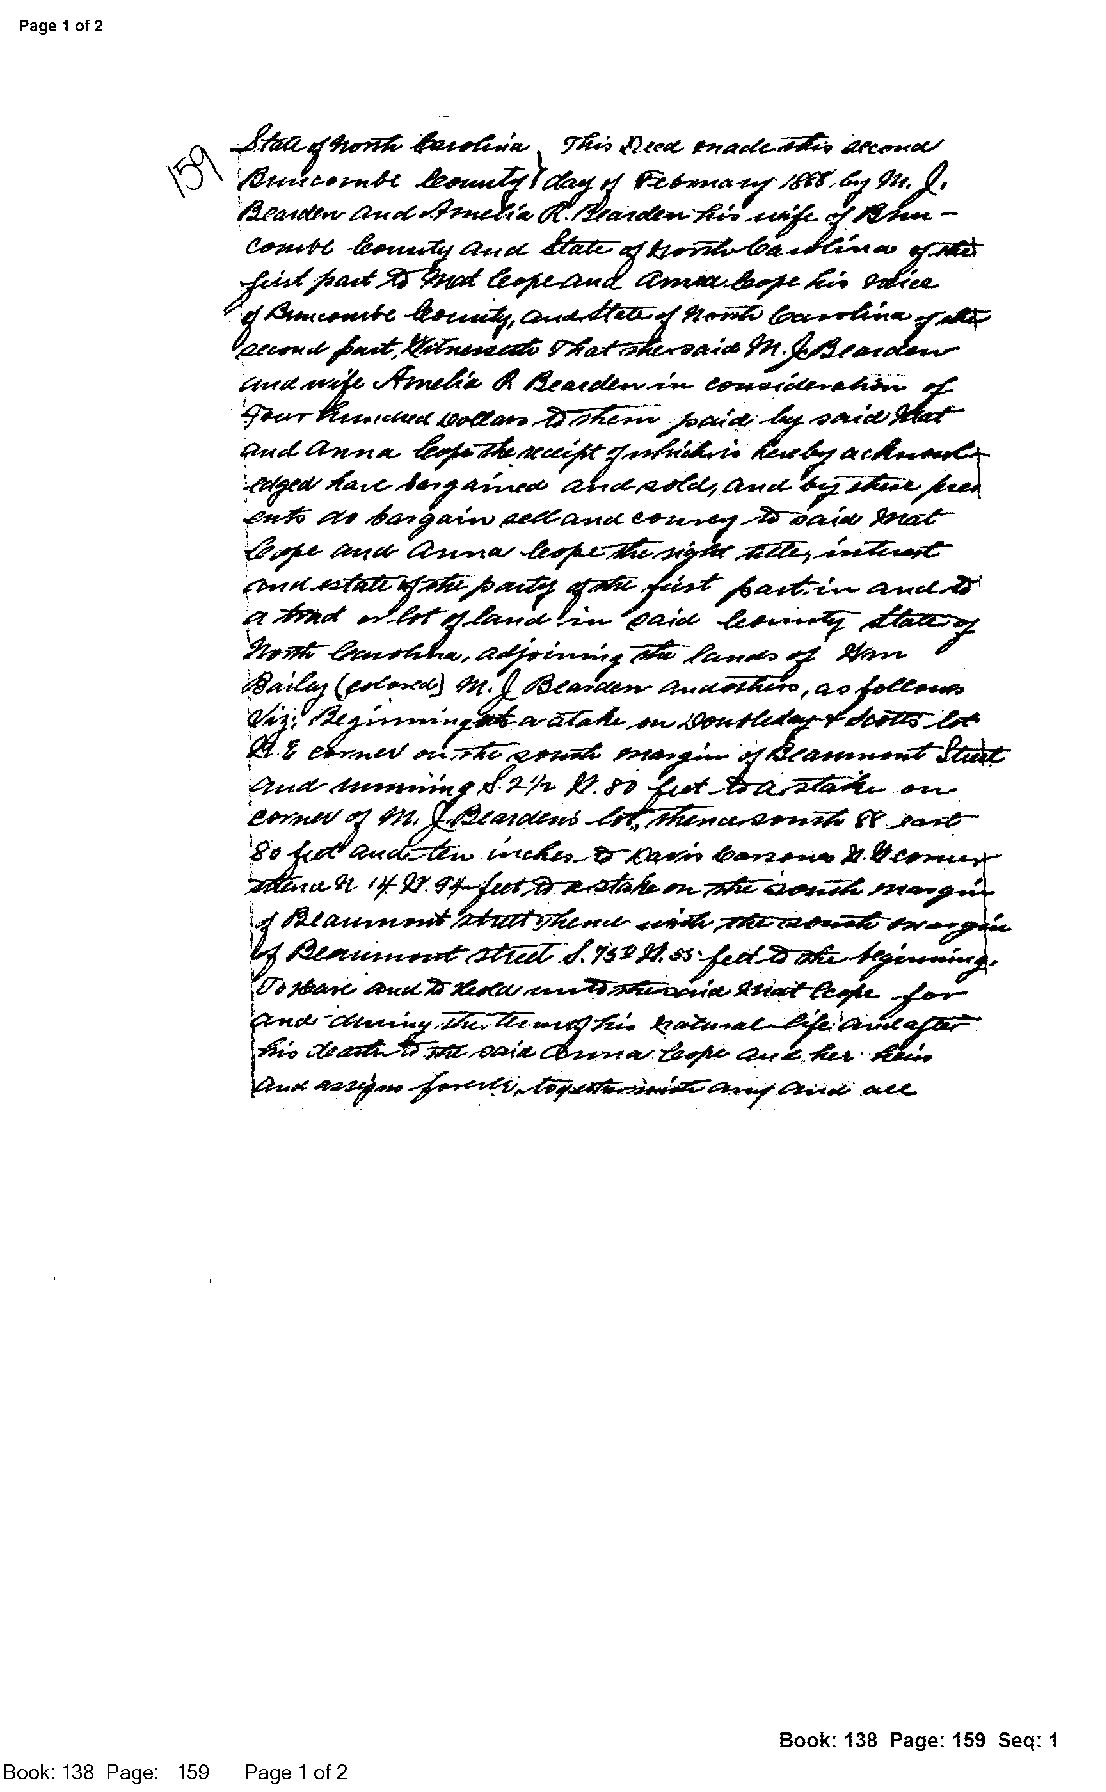 Page 1 of 2
159
State of North Carolina } This Deed made this second
Buncombe County } day of February 1888, by M. J.
Bearden and Amelia R. Bearden his wife of Bun-
combe County and State of North Carolina of the
first part to Mat Cope and Anna Cope his
of Buncombe County, and State of North Carolina of the
second part, Witnesseth That the said M. J. Bearden
and wife Amelia R Bearden in consideration of
Four Hundred Dollars to them paid by said Mat
and Anna Cope the receipt of which is hereby acknowl
edged have bargained and sold, and by these pres
ents do bargain sell and convey to said Mat
Cope and Anna Cope the right title, interest
and estate of the party of the first part in and to
a tract or lot of land in said County State of
North Carolina, adjoining the lands of
Bailey (colored) M. J Bearden and others, as follows
Viz: Beginning at a stake on Doubleday & Scotts lot
N. E corner on the south margin of Beaumont Street
and running S. 2 1/2 W. 80 feet to a stake on
corner of M. J. Bearden's lot, thence south 88 east
80 feet and ten inches to Davis Carsons N. W corner
thence N 14 W. 94 feet to a stake on the south margin
of Beaumont street thence with the south margin
of Beaumont street S. 75 W. 55 feet to the beginning.
To Have and to Hold unto the said Mat Cope for
and during the term of his natural life and after
his death to the said Anna Cope and her heirs
and assigns forever, together with any and all
Book: 138 Page: 159 Seq: 1
Book: 138 Page: 159 Page 1 of 2